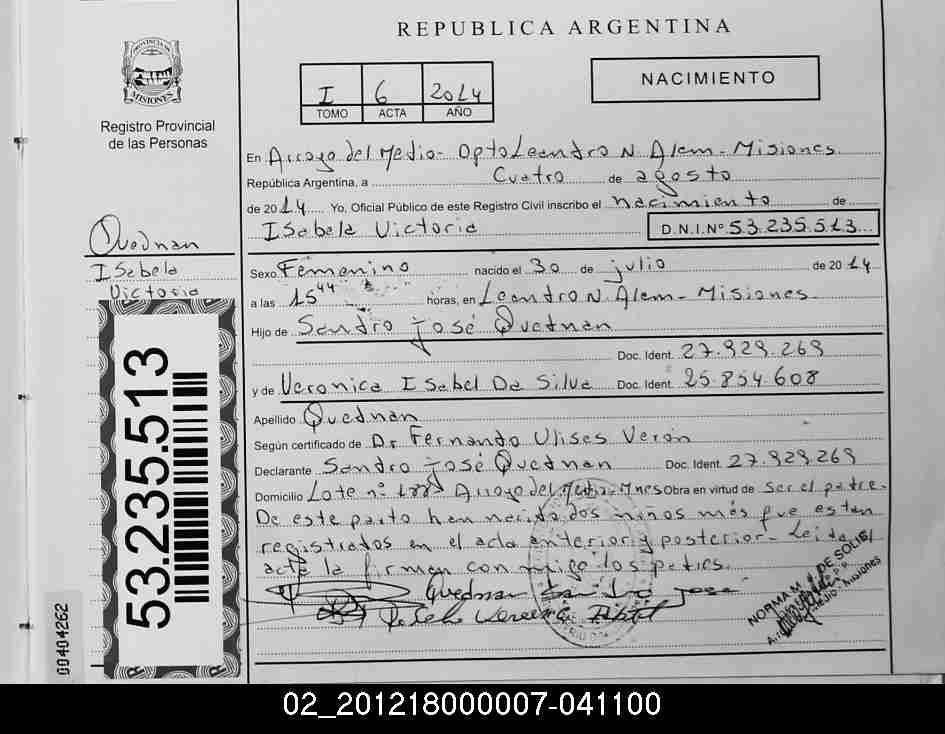 REPUBLICA ARGENTINA
PROVINCIA DE
MISIONES
Registro Provincial
de las Personas
I 6 2014
TOMO ACTA AÑO
NACIMIENTO
En Arroyo del Medio- Dpto Leandro N. Alem- Misiones.
República Argentina, a Cuatro de agosto
de 2014 Yo, Oficial Público de este Registro Civil inscribo el nacimiento de
Isabela Victoria D.N.I.Nº 53.235.513
Quednan
Isabela
Victoria
Sexo Femenino nacido el 30 de julio de 2014
a las 15 44 horas, en Leandro N. Alem- Misiones
Hijo de Sandro José Quednan
Doc. Ident. 27.929.269
y de Veronica Isabel Da Silva Doc. Ident. 25.854.608
Apellido Quednan
Según certificado de Dr Fernando Ulises Verón
Declarante Sandro José Quednan Doc. Ident. 27.929.269
Domicilio Lote nº Arroyo del Medio- Mnes Obra en virtud de ser el padre.
De este parto han nacido dos niños más que estan
registrados en el acta anterior y posterior- Leida el
acta la firman conmigo los padres.
Quednan Sandro José
NORMA M. DE SOLIS
53.235.513
00404262
02_201218000007-041100